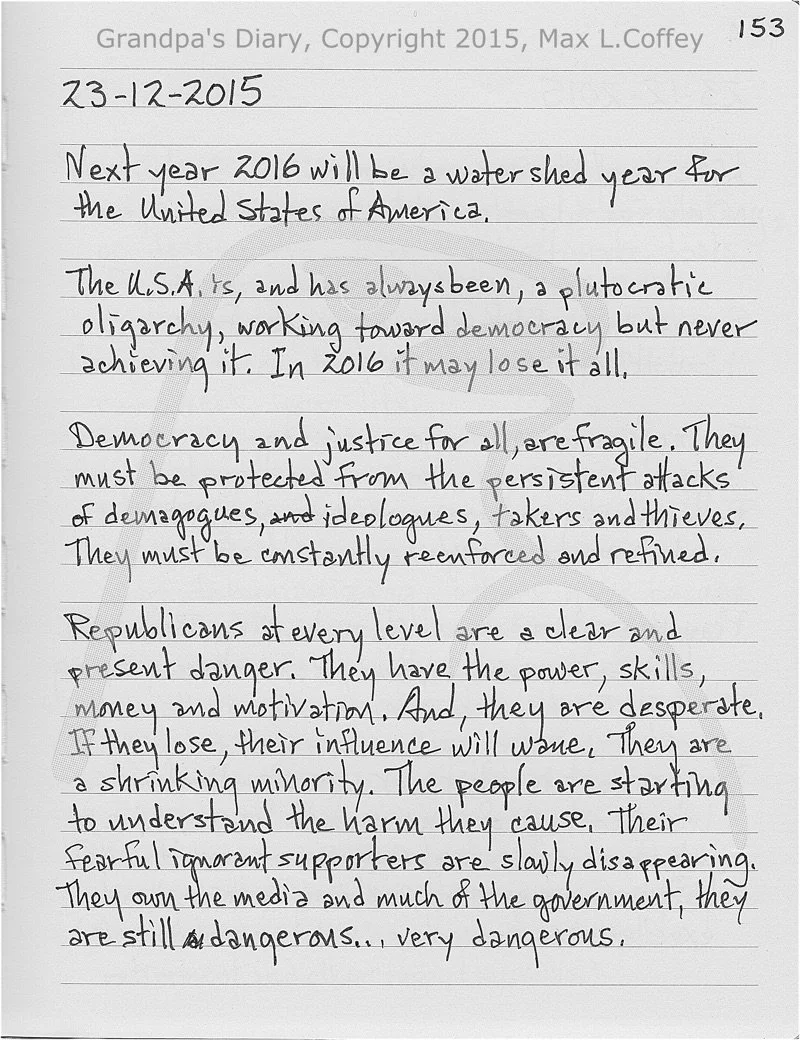 153
Grandpa's Diary, Copyright 2015, Max L.Coffey
23-12-2015
Next year 2016 will be a watershed year for
the United States of America.
The U.S.A. is, and has always been, a plutocratic
oligarchy, working toward democracy but never
achieving it. In 2016 it may lose it all.
Democracy and justice for all, are fragile. They
must be protected from the persistent attacks
of demagogues, and ideologues, takers and thieves.
They must be constantly reenforced and refined.
Republicans at every level are a clear and
present danger. They have the power, skills,
money and motivation. And, they are desperate.
If they lose, their influence will wane. They are
a shrinking minority. The people are starting
to understand the harm they cause. Their
fearful ignorant supporters are slowly disappearing.
They own the media and much of the government, they
are still dangerous... very dangerous.